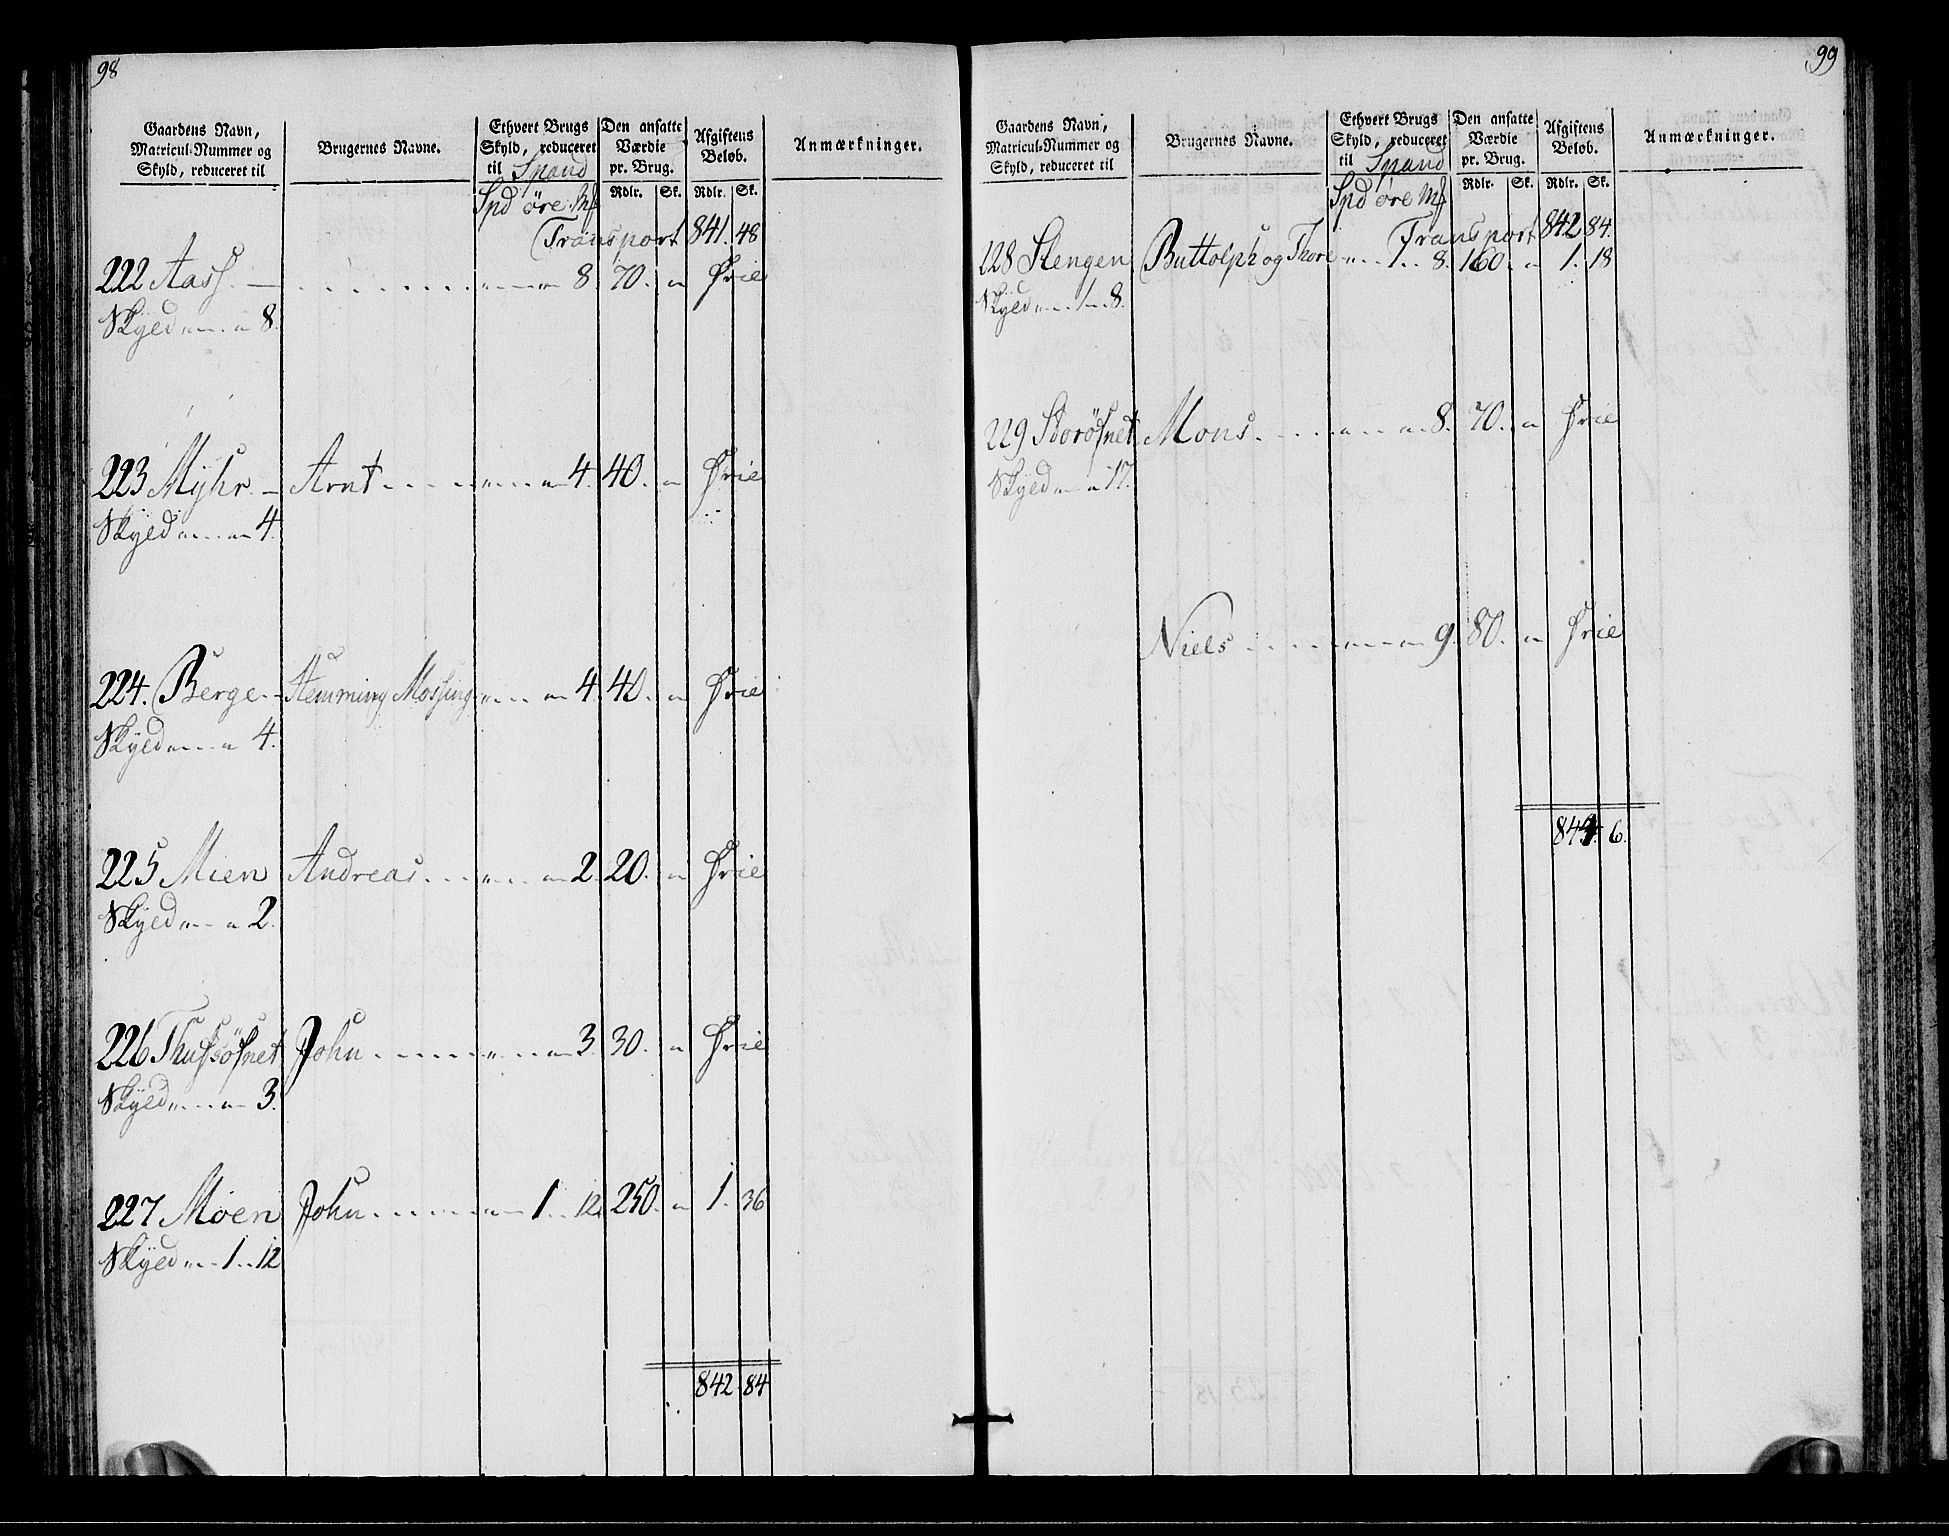 98
Gaardens Navn, Matricul-Nummer og Skyld, reduceret til | Brugernes Navne. | Ethvert Brugs Skyld, reduceret til Spand | Den ansatte Værdie pr. Brug. | Afgiftens Beløb. | Anmærkninger.
Spd öre Mf | Rdlr. | Sk. | Rdlr. | Sk.
Transport 841. 48
222 Aass. — 8 70. „ Frie
Skyld „ „ 8.
223 Myhr — Arnt 4. 40. „ Frie
Skyld „ „ 4.
224. Berge — Hemming Mossing 4. 40. „ Frie
Skyld „ „ 4.
225 Mien Andreas 2. 20. „ Frie
Skyld „ „ 2.
226 Thussösnet John 3. 30. „ Frie
Skyld „ „ 3.
227 Moen John 1. 12. 250. „ 1. 36
Skyld „ 1. 12
842. 84
99
Gaardens Navn, Matricul-Nummer og Skyld, reduceret til | Brugernes Navne. | Ethvert Brugs Skyld, reduceret til Spand | Den ansatte Værdie pr. Brug. | Afgiftens Beløb. | Anmærkninger.
Spd öre Mf | Rdlr. | Sk. | Rdlr. | Sk.
Transport 842 84.
128 Stengen Buttolph og Thore „ 1. 8. 160. „ 1. 18
Skyld „ 1 „ 8.
229 Storösnet Mons 8. 70. „ Frie
Skyld „ „ 17.
Niels 9. 80. „ Frie
844. 6.